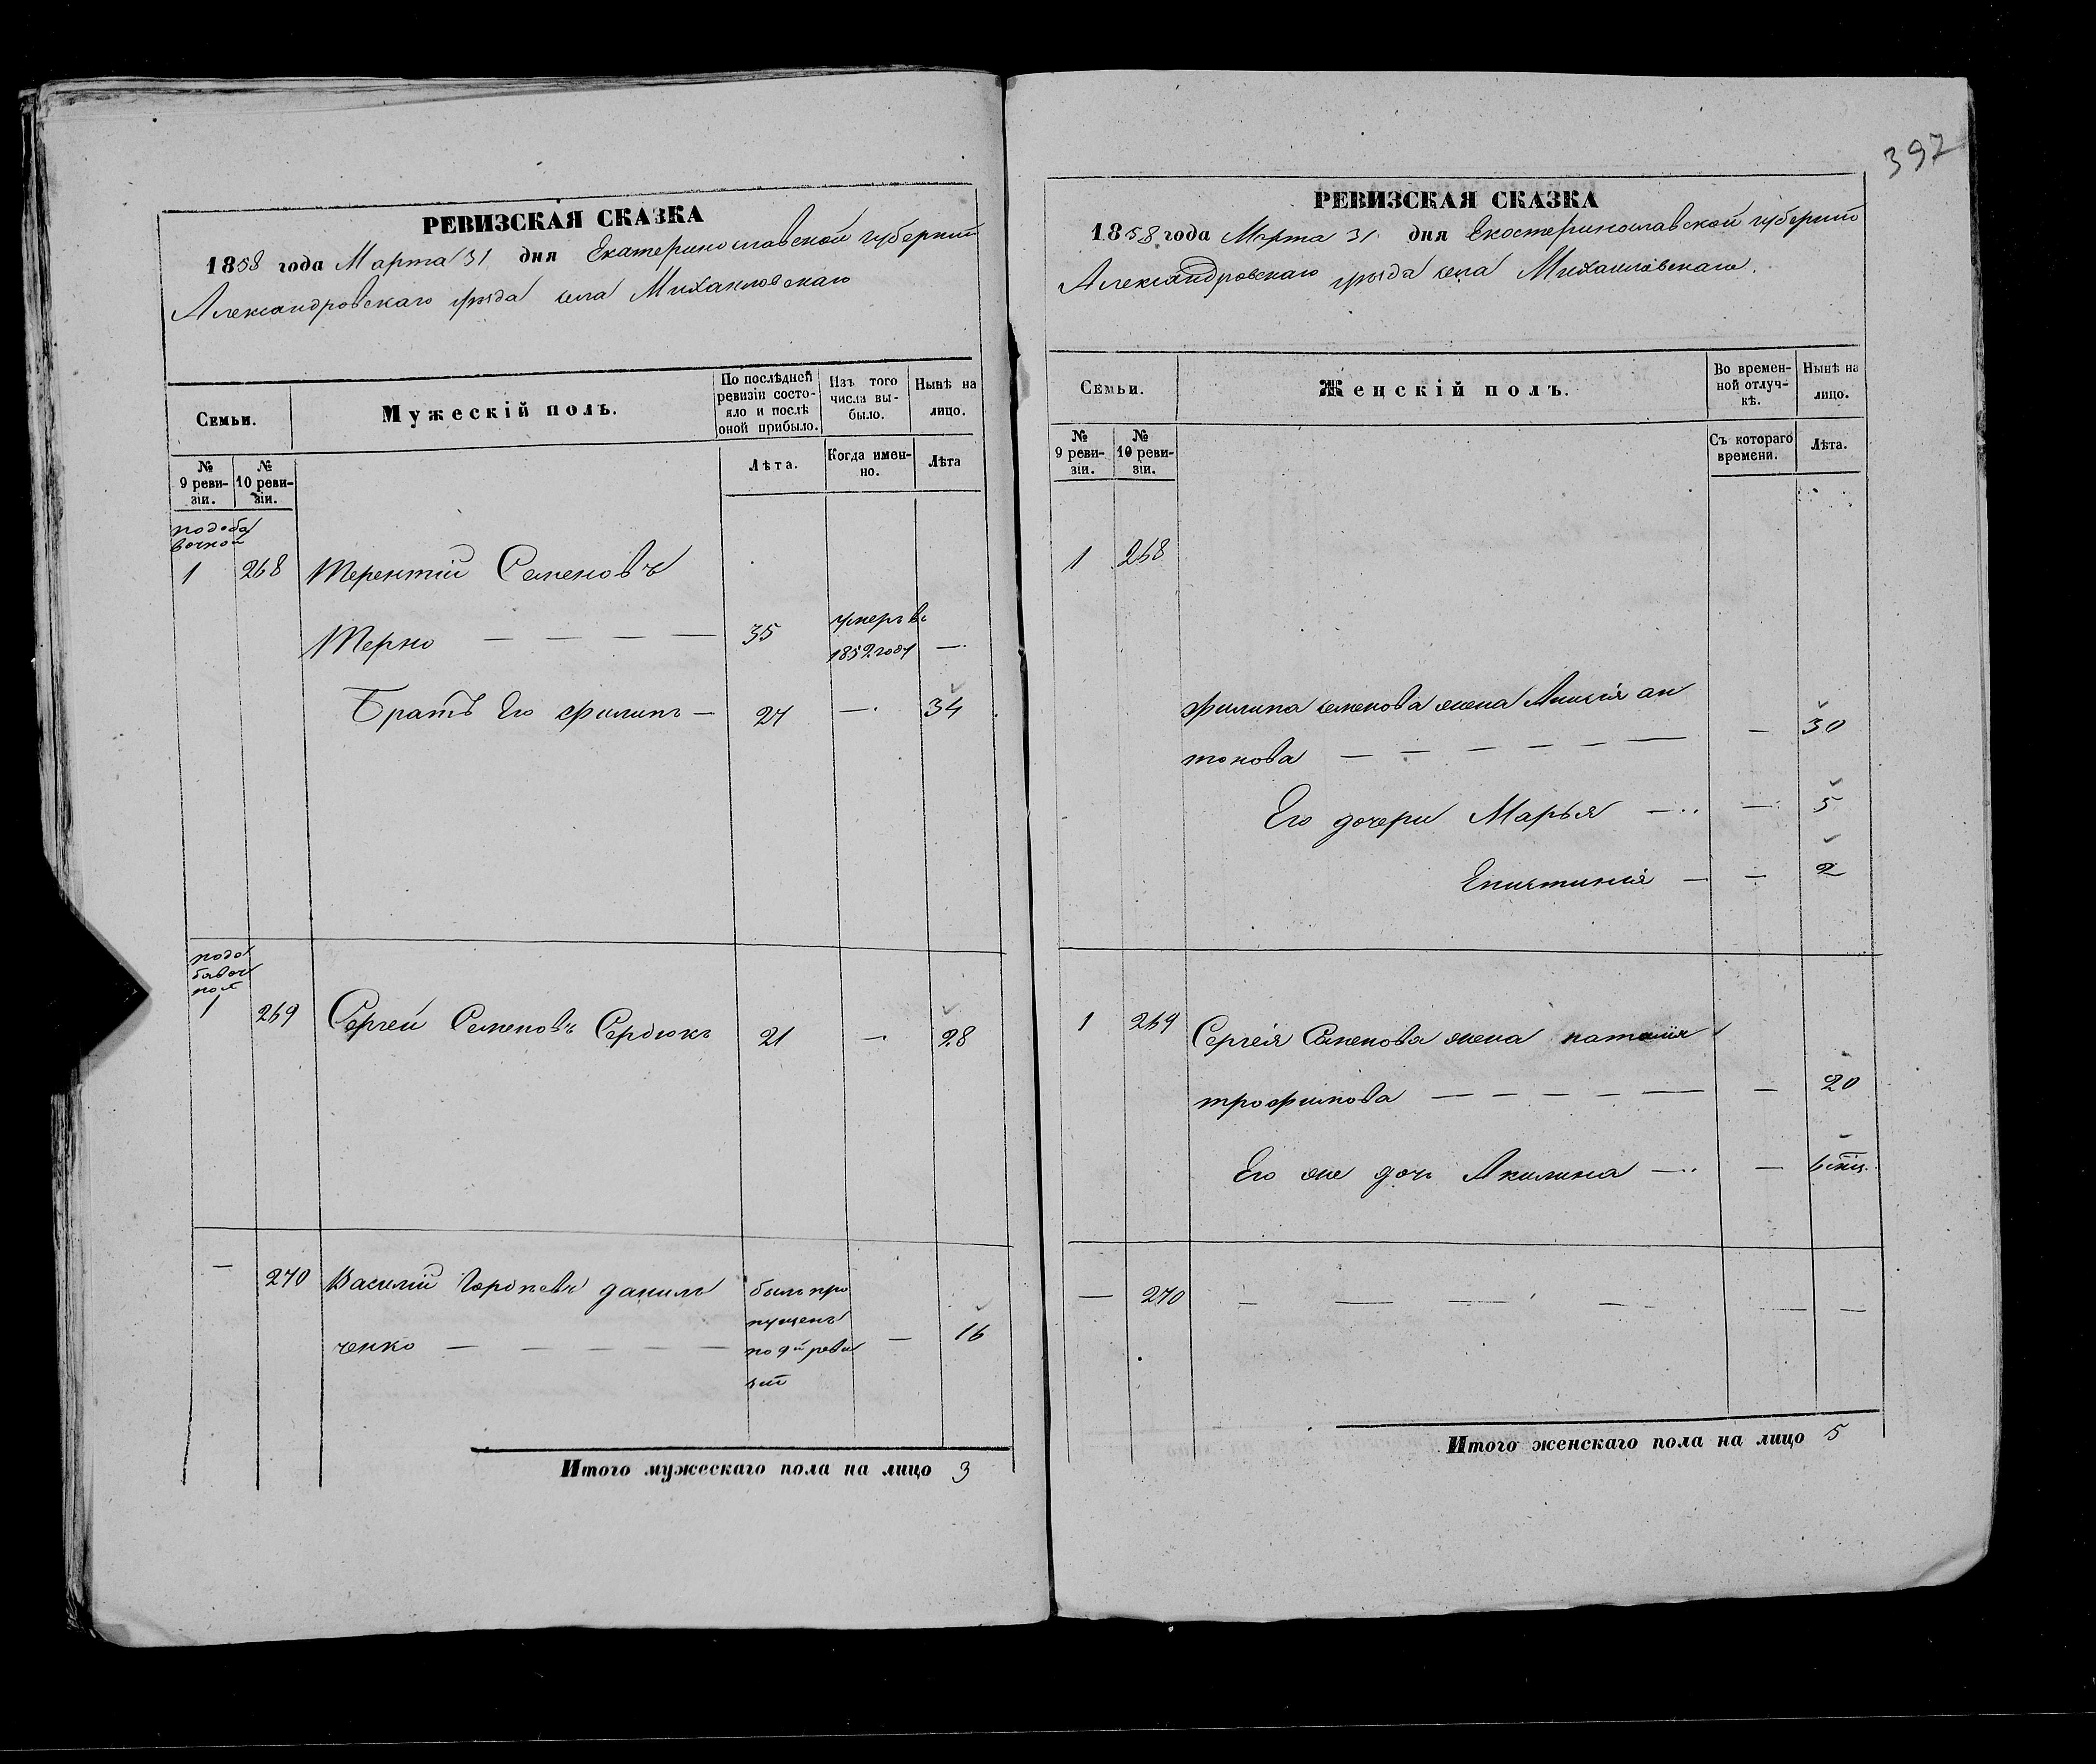 РЕВИЗСКАЯ СКАЗКА
1858 года Марта 31 дня Екатеринославской губернии
Александровскаго уѣзда села Михайловскаго
Семьи.
Мужескій полъ.
По послѣдней ревизіи состояло и послѣ оной прибыло.
Изъ того числа выбыло.
Нынѣ на лицо.
№ 9 ревизіи.
№ 10 ревизіи.
Лѣта.
Когда именно.
Лѣта
подоба
вочной
1 268 Терентій Семеновъ
Терно — — — — 35 умеръ въ 1852 году —
Братъ Его Филипъ — 27 — 34
подо
бавоч
ной
1 269 Сергей Семеновъ Сердюкъ 21 — 28
— 270 Василій Гордѣевъ данил
ченко — — — — — — былъ про
пущенъ
по 9й реви
зіи — 16
Итого мужескаго пола на лицо 3
397
РЕВИЗСКАЯ СКАЗКА
1858 года Марта 31 дня Екатеринославской губернии
Александровскаго уѣзда села Михайловскаго.
Семьи.
Женскій полъ.
Во временной отлучкѣ.
Нынѣ на лицо.
№ 9 ревизіи.
№ 10 ревизіи.
Съ котораго времени.
Лѣта.
1 268
Филипа семенова жена Анисія ан
тонова — — — — — — — 30
Его дочери Марья — — 5
Епистимія — — 2
1 269 Сергея Семенова жена наталия
трофимова — — — — — — 20
Его же дочь Акилина — — 6 мѣц.
— 270 — — — — — —
Итого женскаго пола на лицо 5